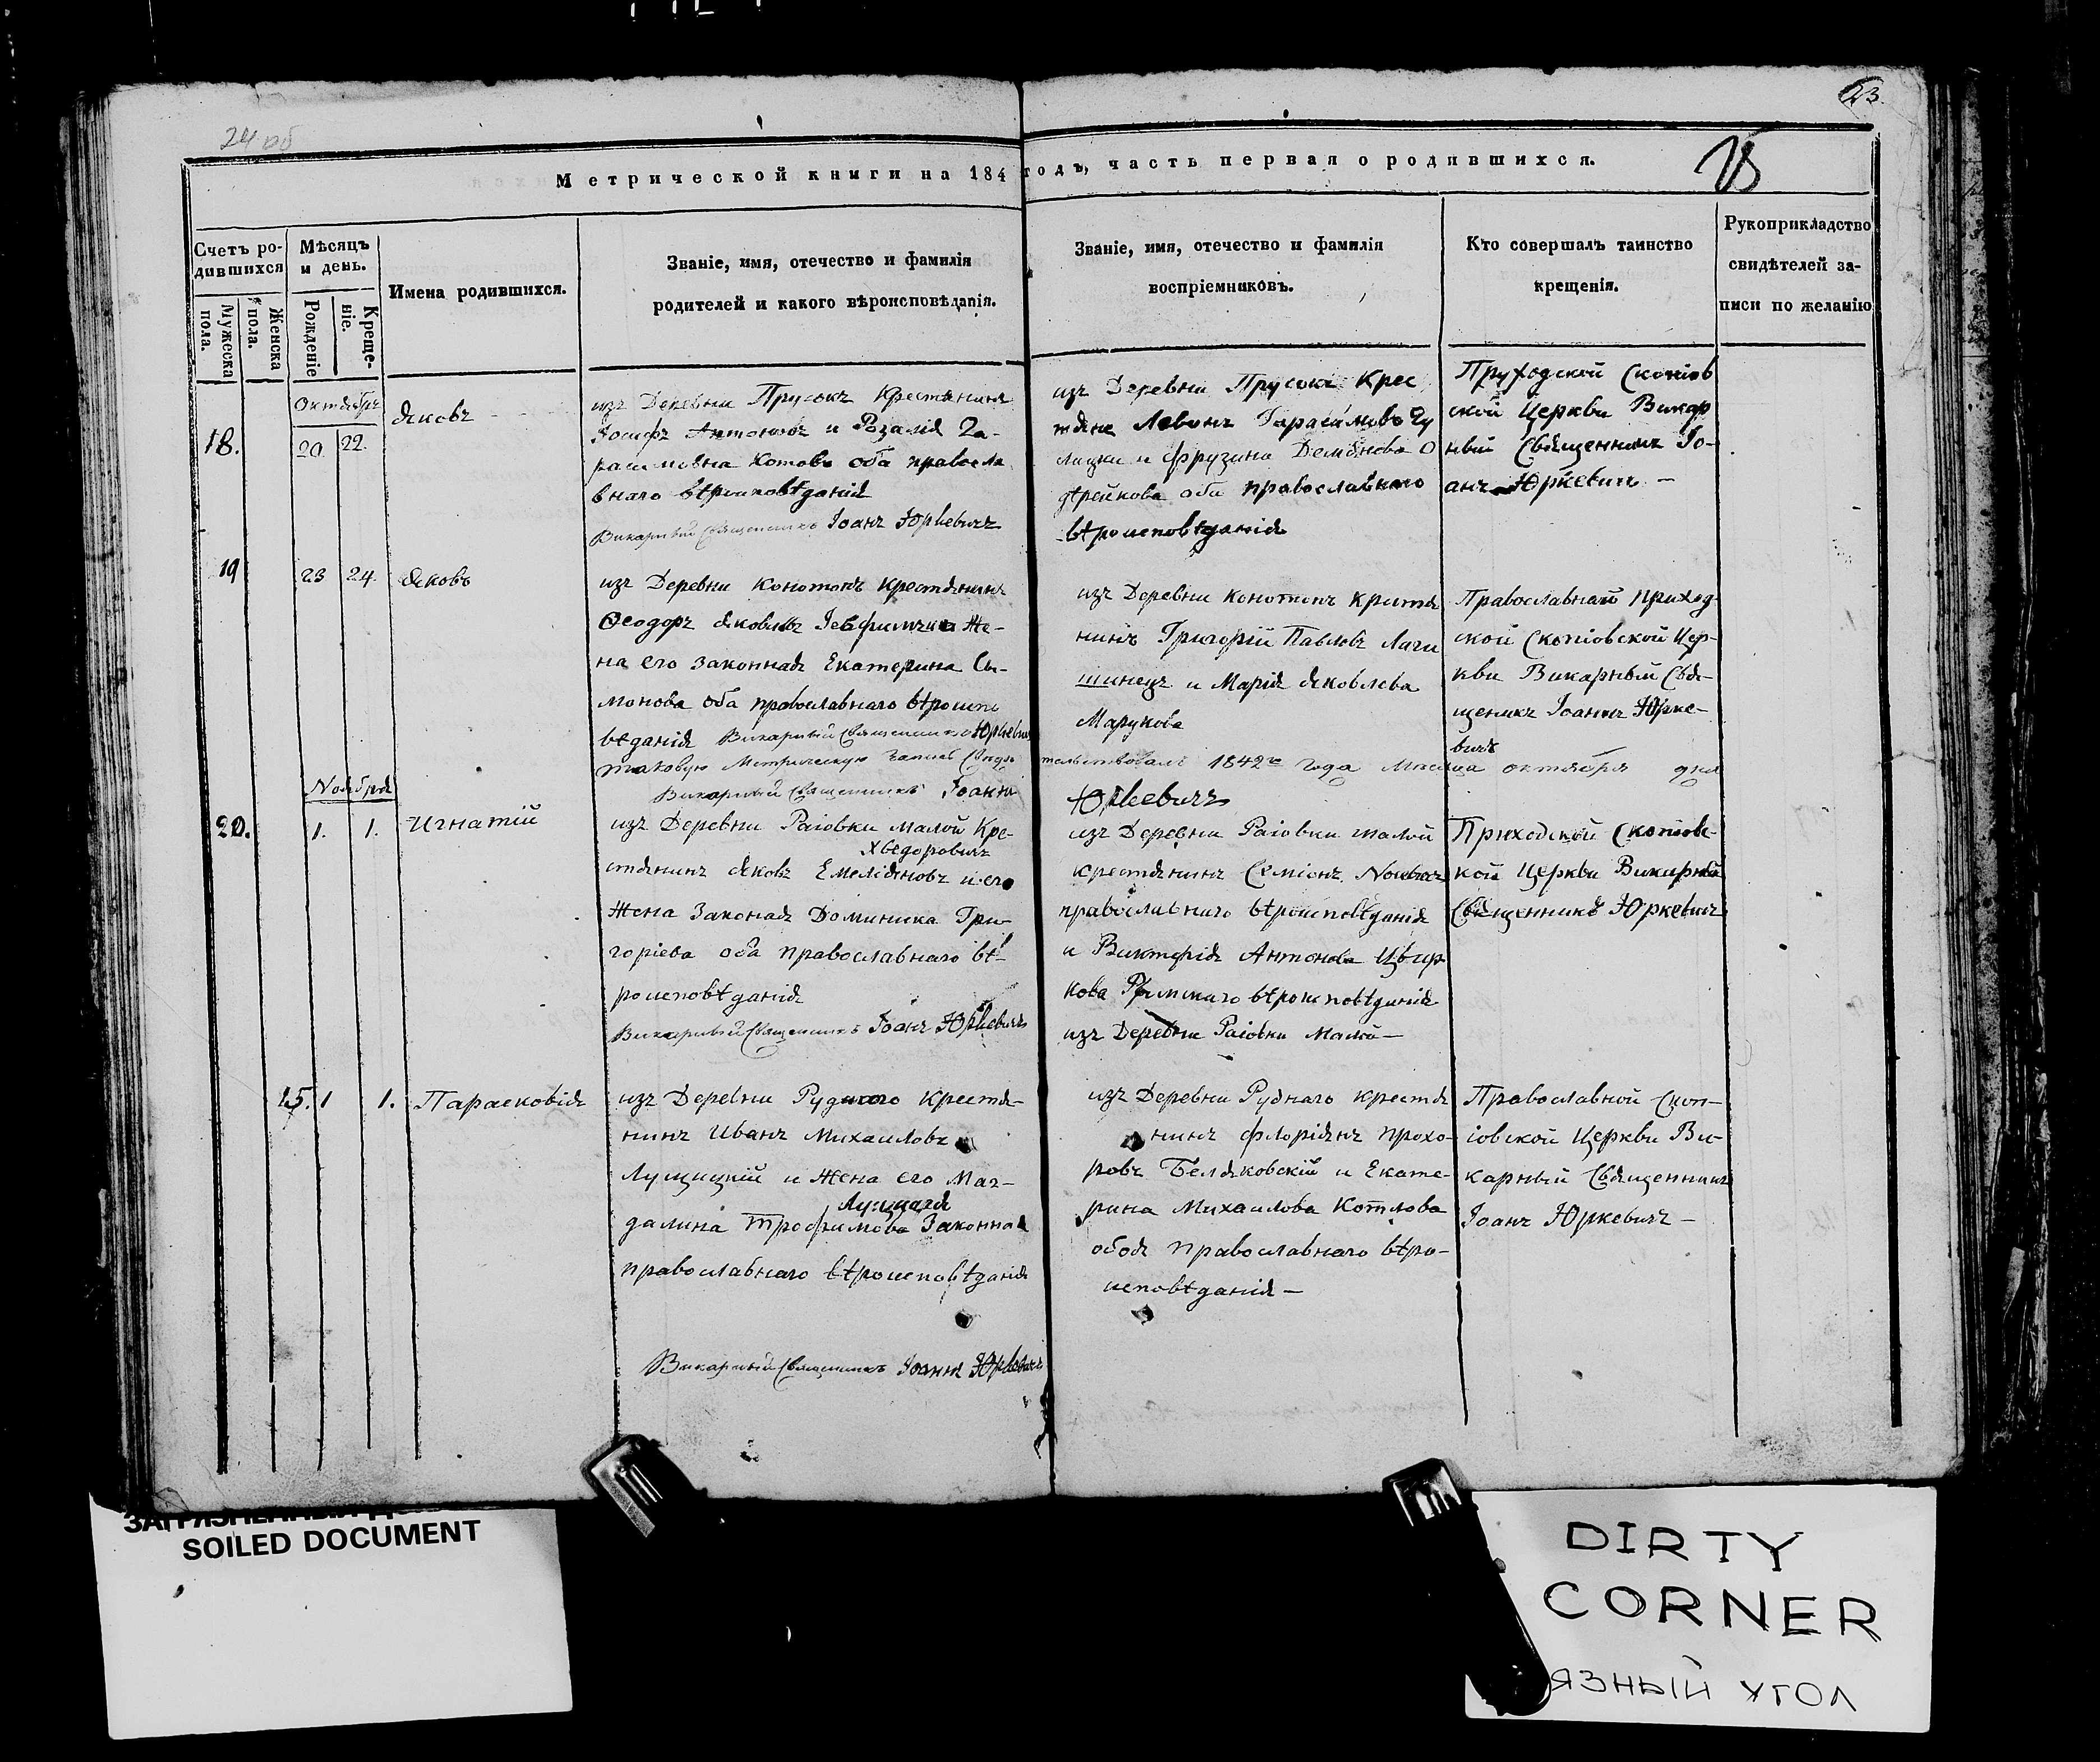 23.
24 об
Метрической книги на 184 годъ, часть первая о родившихся.
18
Счетъ ро-
дившихся
Мужеска
пола.
Женска
пола.
Мѣсяцъ
и день.
Рожденіе
Креще-
ніе.
Имена родившихся.
Званіе, имя, отечество и фамилія
родителей и какого вѣроисповѣданія.
Званіе, имя, отечество и фамилія
воспріемниковъ.
Кто совершалъ таинство
крещенія.
Рукоприкладство
свидѣтелей за-
писи по желанію
Октябрь
18. 20. 22. Яковъ
изъ Деревни Прусокъ Крестянинъ
Іосифъ Антоновъ и Розалія Га-
расимовна Котовы оба правосла
внаго вѣроисповѣданія
Викарный Священникъ Іоанъ Юркевичъ
изъ Деревни Прусокъ Крес
тянъ Левонъ Гарасимовъ
и Фрузина Демянова
оба православнаго
вѣроисповѣданія
Скопіов
ской Церкви Викар
ный Священникъ Іо-
анъ Юркевичъ –
19 23 24. Яковъ
изъ Деревни Конотопъ Крестянинъ
Ѳеодоръ Яковлевъ Же-
на его законная Екатерина Си-
монова оба православнаго вѣроиспо
вѣданія Викарный Священникъ Юркевич
изъ Деревни Конотопъ Крестя
нинъ Григорій Павловъ
и Марія Яковлева
Марукова
Православной приход
ской Скопіовской Цер-
кви Викарный Свя-
щеникъ Іоаннъ Юрке-
вичъ
таковую Метрическую запись Свидѣ
тельствовалъ 1842го года Месяца октября дня
Викарный Священникъ Іоаннъ
Юркевичъ
Ноября
20. 1. 1. Игнатій
изъ Деревни Раіовки малой Кре-
Хведоровичъ
стянинъ Яковъ Емеліяновъ и его
Жена Законая Доминика Гри-
горіева оба православнаго вѣ-
роисповѣданія
Викарный Священникъ Іоанъ Юркевичъ
изъ Деревни Раіовки малой
крестянинъ Семіонъ
православнаго вѣроисповѣданія
и Викторія Антонова Цвир
кова Римскаго вѣроисповѣданія
изъ Деревни Раіовки Малой –
Приходской Скопіовс-
кой Церкви Викарный
Священникъ Юркевичъ
15. 1 1. Парасковія
изъ Деревни Руднаго крестя-
нинъ Иванъ Михаиловъ
Лущицкій и Жена его Маг-
Лущицкая
далина Трофимова Законная
православнаго вѣроисповѣданія
Викарный Священникъ Іоаннъ Юркевичъ
изъ Деревни Руднаго крестя
нинъ Флоріянъ Прохо-
ровъ Беляковскій и Екате-
рина Михаилова Котлова
обоя православнаго вѣро-
исповѣданія –
Православной Скоп-
іовской Церкви Ви-
карный Священникъ
Іоанъ Юркевичъ –
SOILED DOCUMENT
DIRTY
CORNER
ЯЗНЫЙ УГОЛ